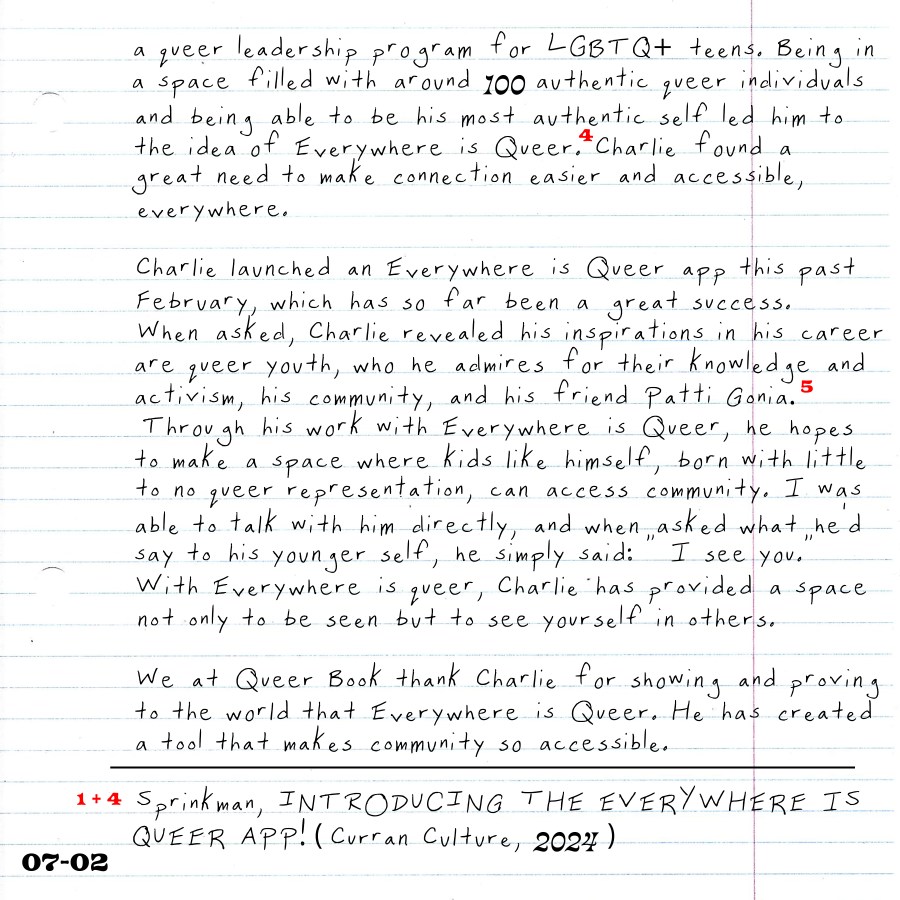 a queer leadership program for LGBTQ+ teens. Being in
a space filled with around 100 authentic queer individuals
and being able to be his most authentic self led him to
the idea of Everywhere is Queer.4 Charlie found a
great need to make connection easier and accessible,
everywhere.
Charlie launched an Everywhere is Queer app this past
February, which has so far been a great success.
When asked, Charlie revealed his inspirations in his career
are queer youth, who he admires for their knowledge and
activism, his community, and his friend Patti Gonia.5
Through his work with Everywhere is Queer, he hopes
to make a space where kids like himself, born with little
to no queer representation, can access community. I was
able to talk with him directly, and when asked what he'd
say to his younger self, he simply said: "I see you."
With Everywhere is queer, Charlie has provided a space
not only to be seen but to see yourself in others.
We at Queer Book thank Charlie for showing and proving
to the world that Everywhere is Queer. He has created
a tool that makes community so accessible.
1+4 Sprinkman, INTRODUCING THE EVERYWHERE IS
QUEER APP! (Curran Culture, 2024)
07-02